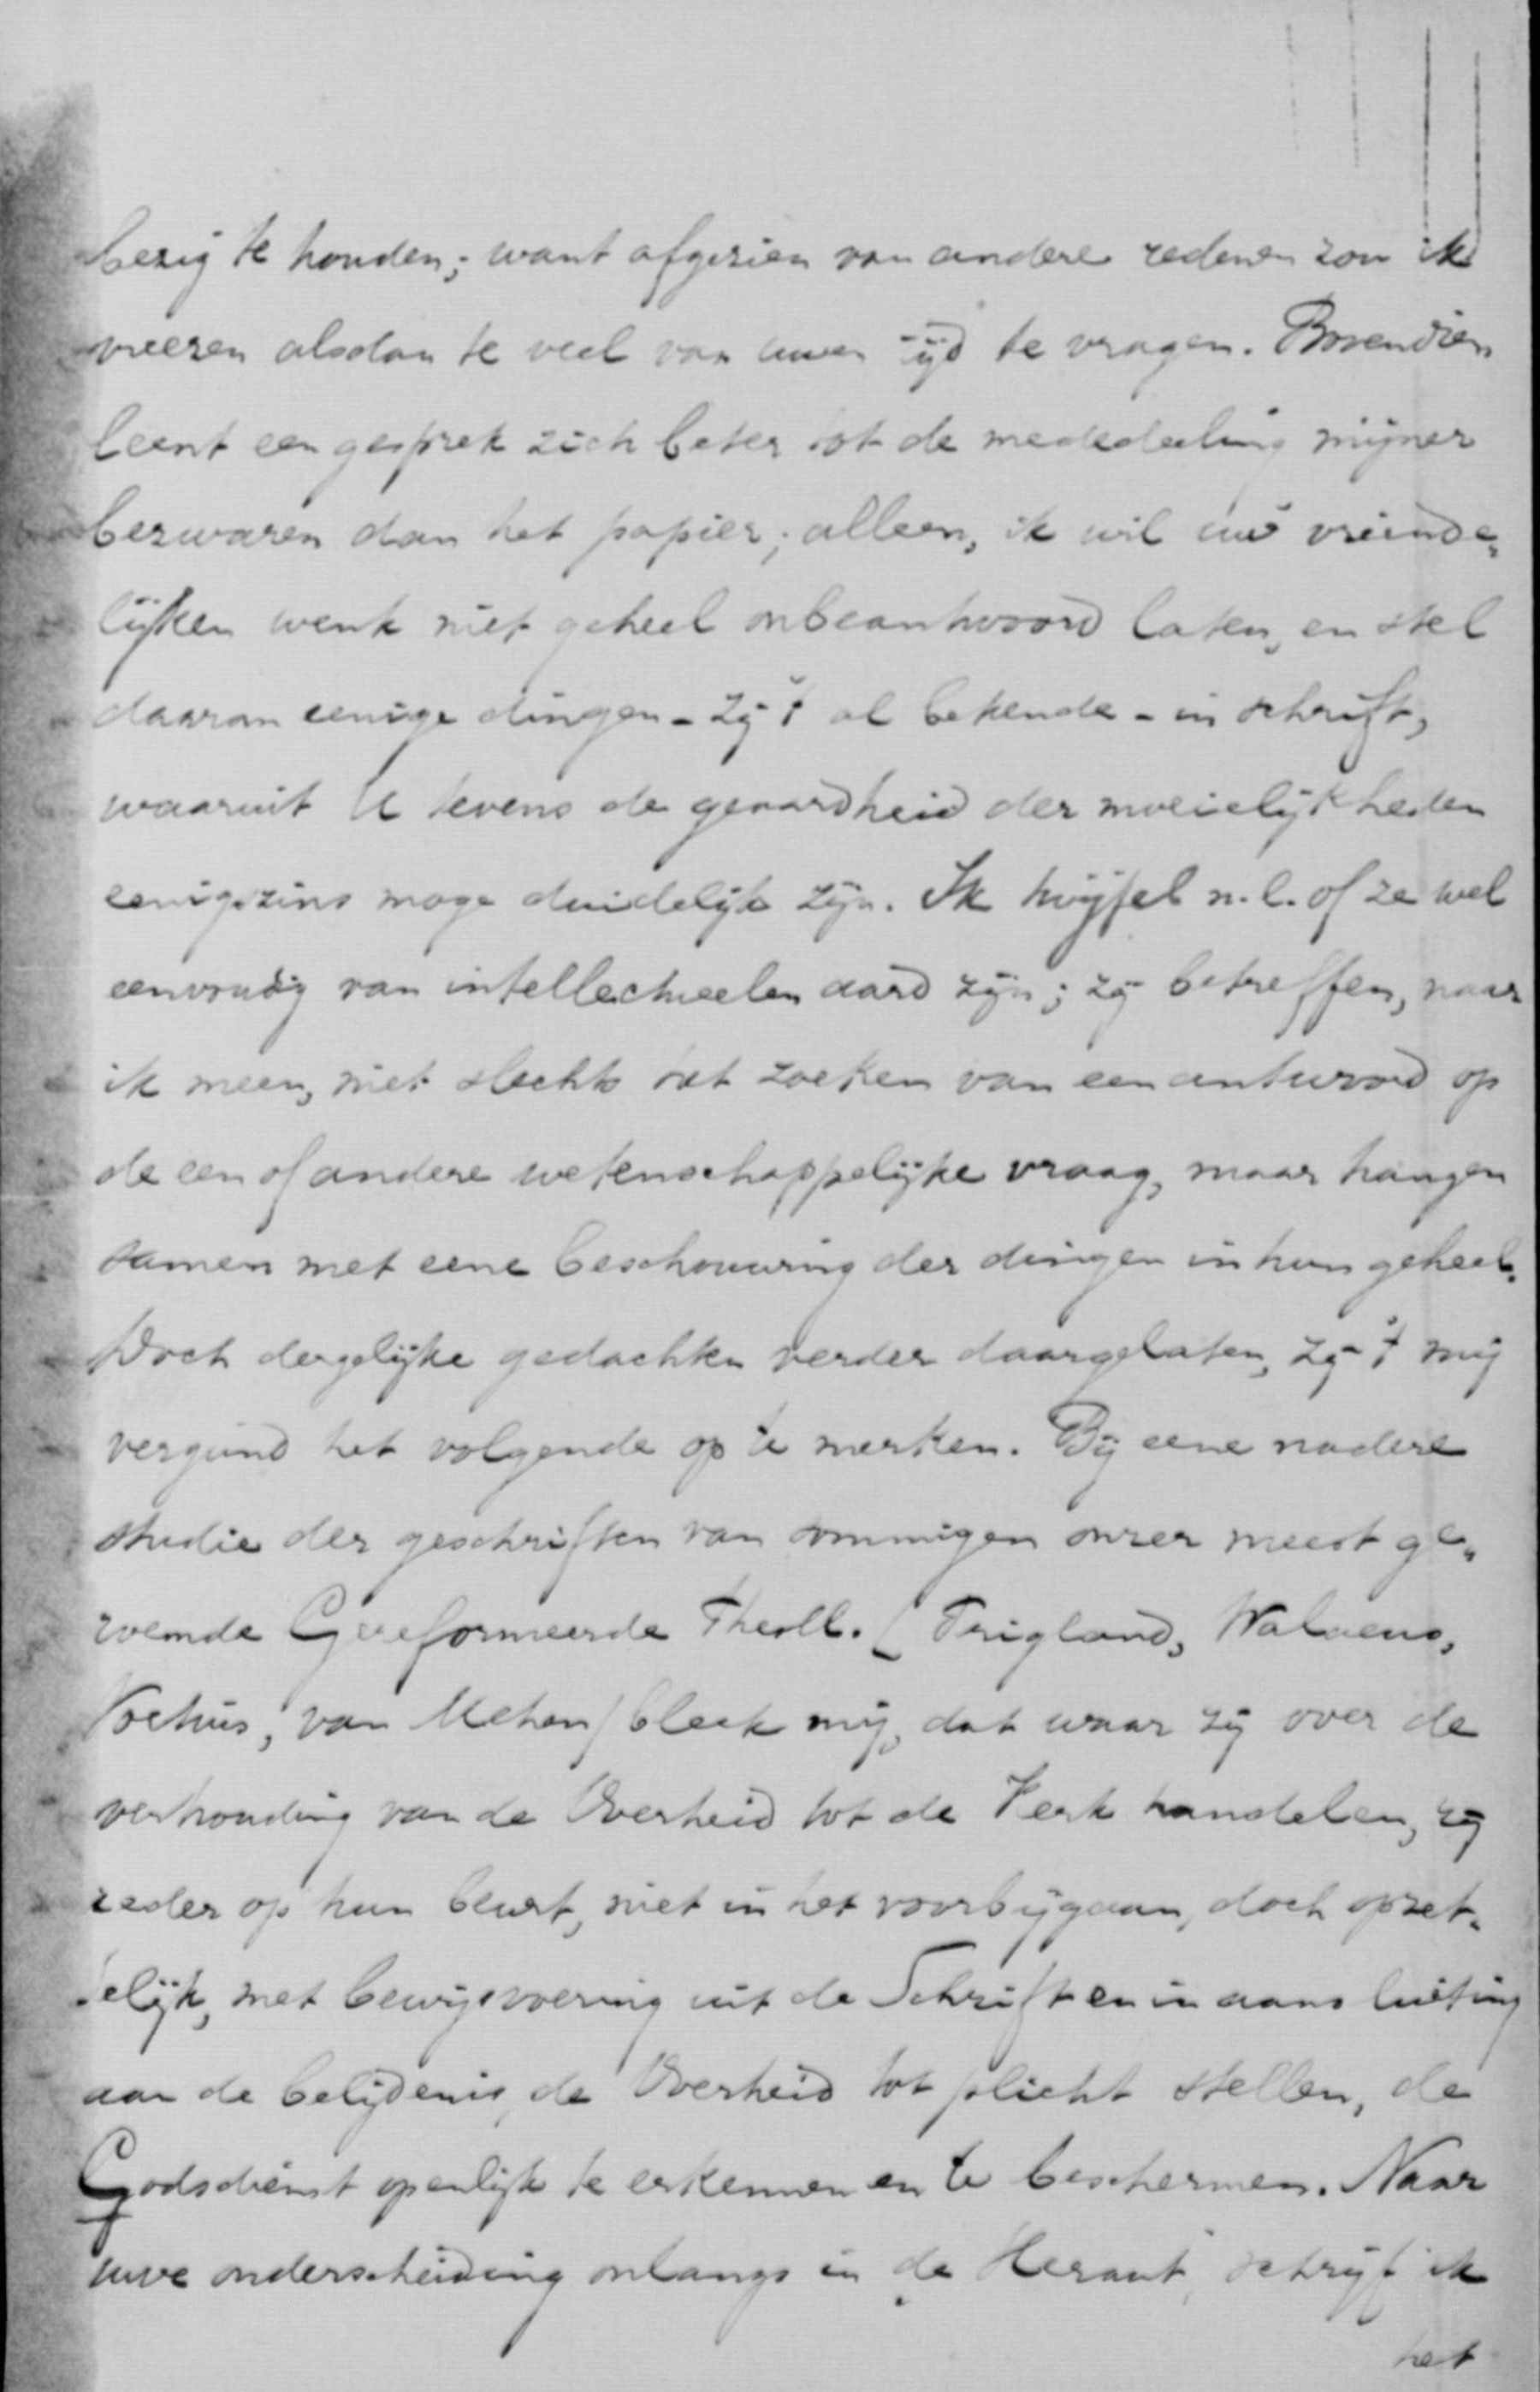 bezig te houden; want afgezien van andere redenen zou ik
vreezen alsdan te veel van uwen tijd te vragen. Bovendien
leent een gesprek zich beter tot de mededeeling mijner
bezwaren dan het papier; alleen, ik wil uw vriende„
lijken wenk niet geheel onbeantwoord laten, en stel
daarom eenige dingen - zij 't al bekende - in schrift,
waaruit U tevens de geaardheid der moeielijkheden
eenigszins moge duidelijk zijn. Ik twijfel n.l. of ze wel
eenvoudig van intellectueelen aard zijn; zij betreffen, naar
ik meen, niet slechts het zoeken van een antwoord op
de een of andere wetenschappelijke vraag, maar hangen
samen met eene beschouwing der dingen in hun geheel.
Doch dergelijke gedachten verder daargelaten, zij 't mij
vergund het volgende op te merken. Bij eene nadere
studie der geschriften van sommigen onzer meest ge„
roemde Gereformeerde Theoll. (Trigland, Walaeus,
Voetius, van Mehen) bleek mij, dat waar zij over de
verhouding van de Overheid tot de Kerk handelen, zij
ieder op hun beurt, niet in het voorbijgaan, doch opzet„
telijk, met bewijsvoering uit de Schrift en in aansluiting
aan de belijdenis, de Overheid tot plicht stellen, de
Godsdienst openlijk te erkennen en te beschermen. Naar
uwe onderscheiding onlangs in de Heraut, schrijf ik
het